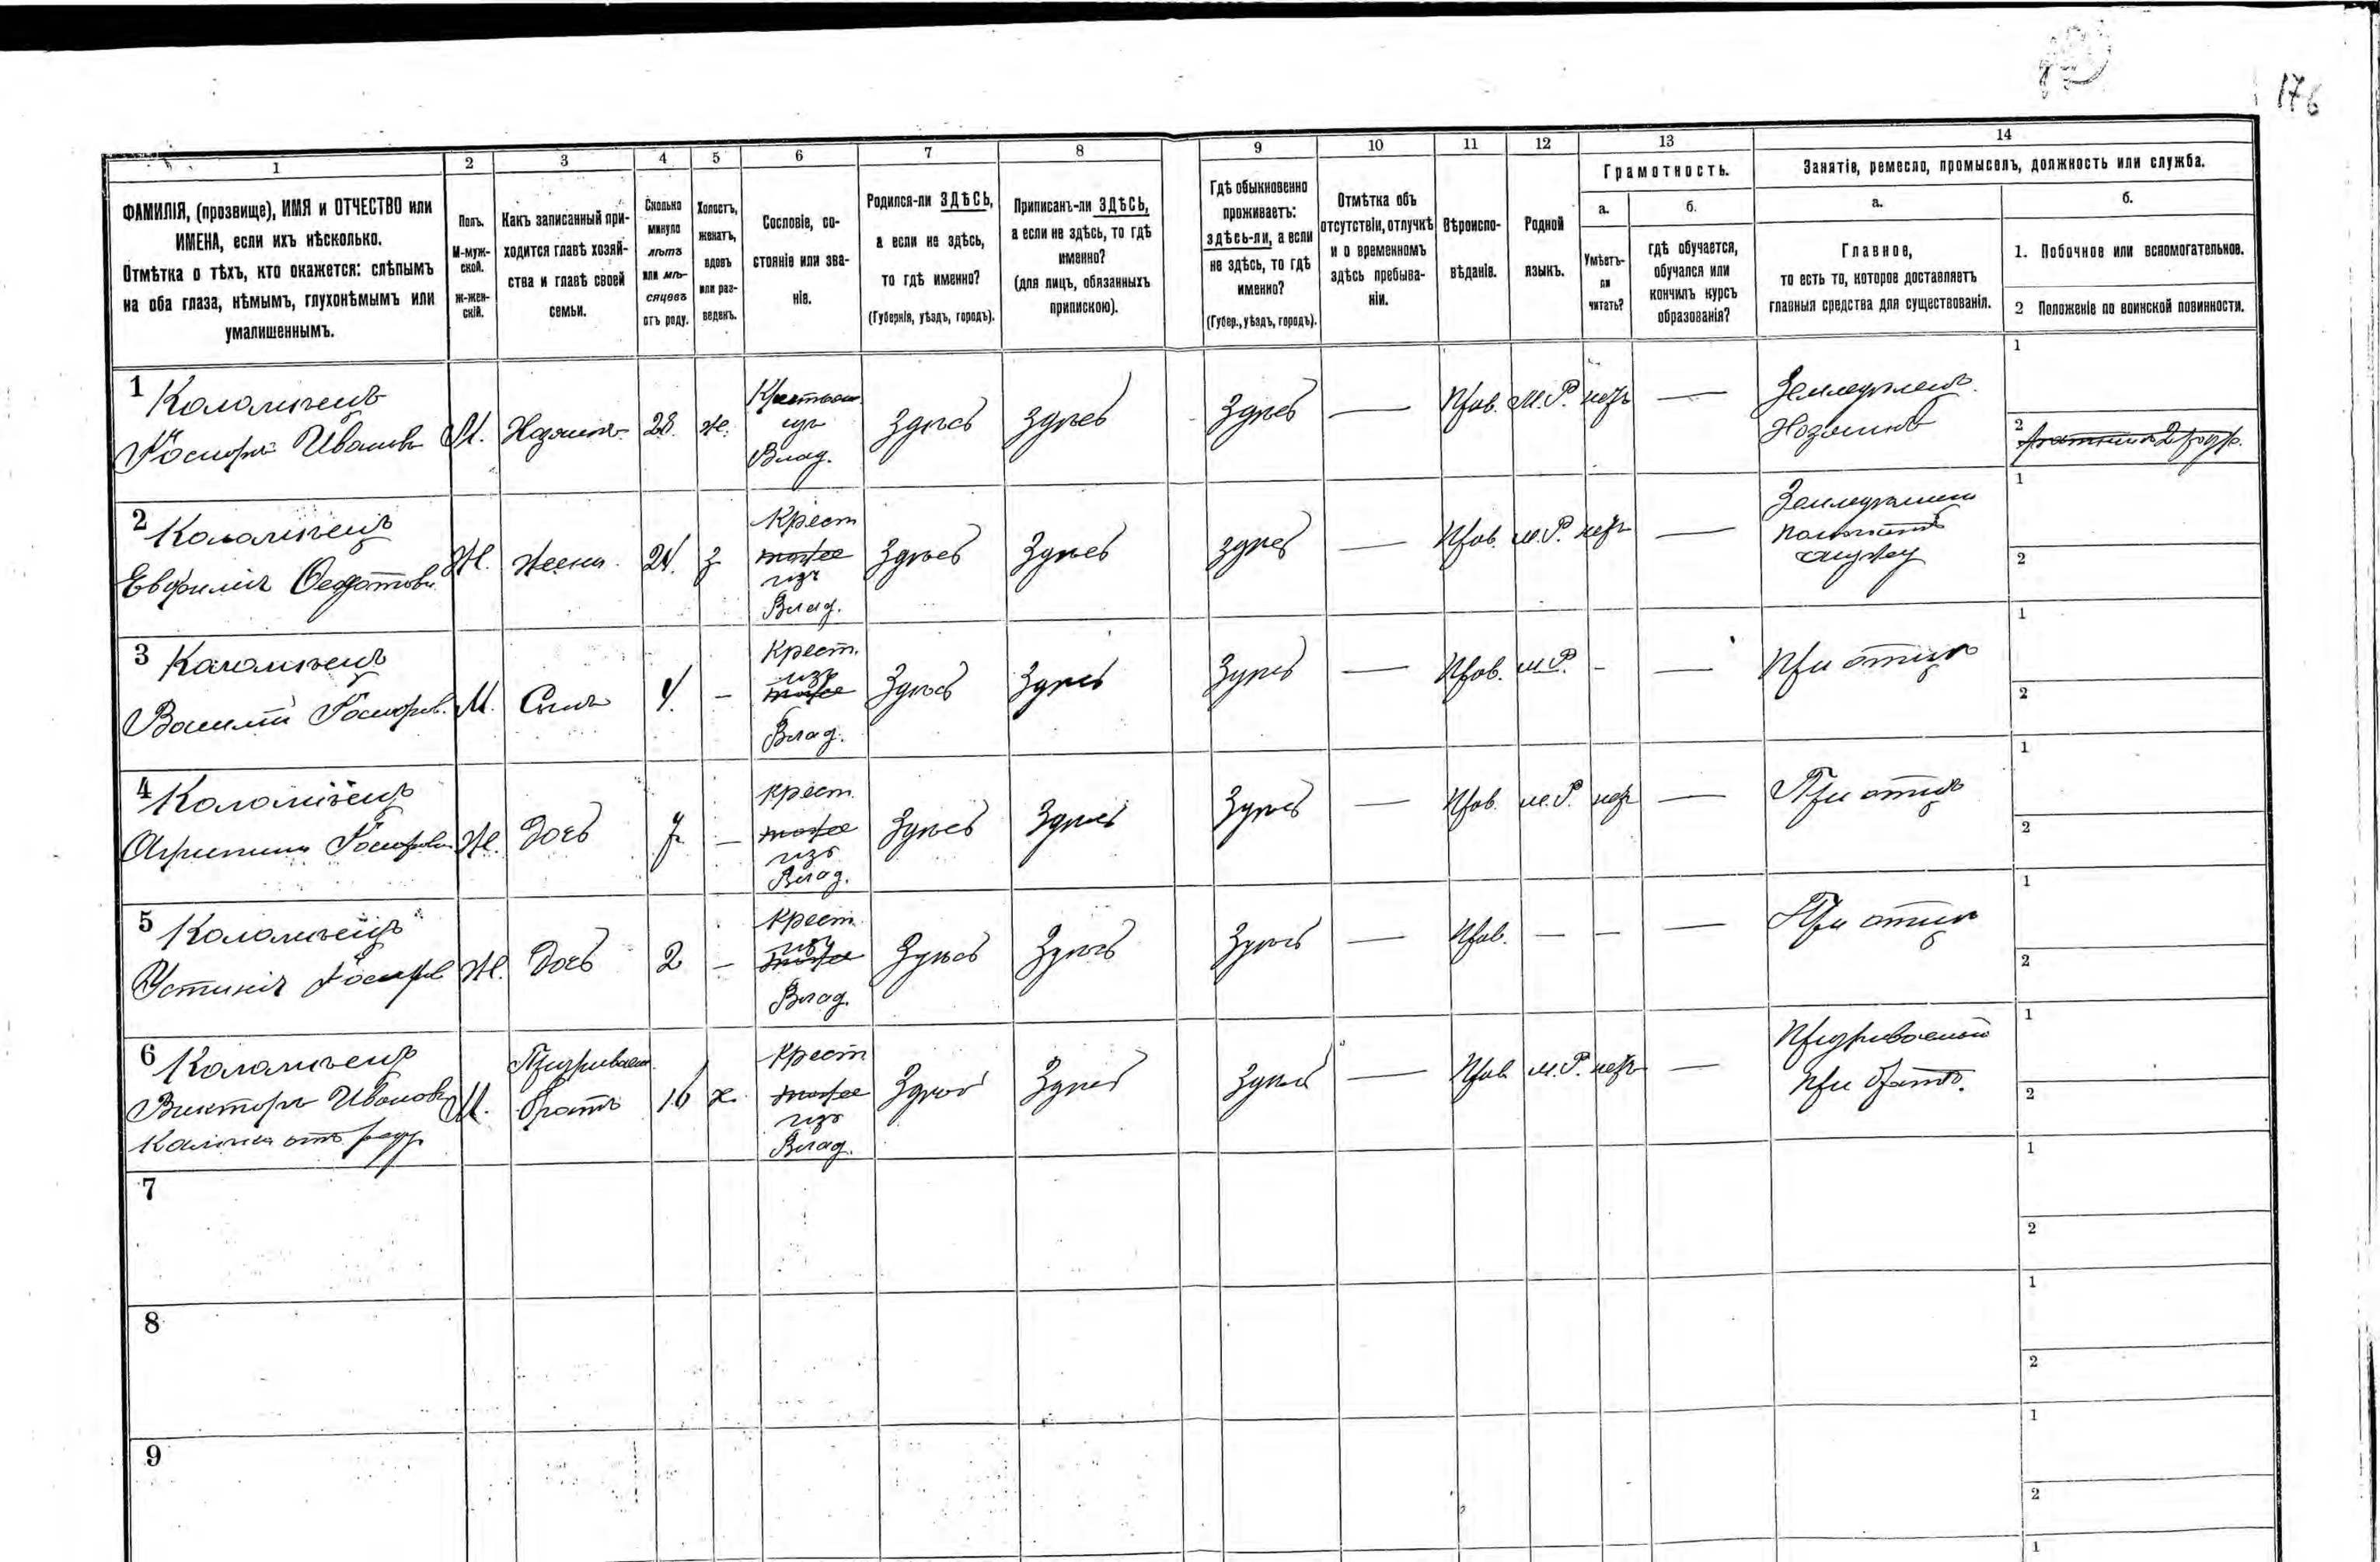 176
1 2 3 4 5 6 7 8 9 10 11 12 13 14
ФАМИЛІЯ, (прозвище), ИМЯ и ОТЧЕСТВО или
ИМЕНА, если ихъ нѣсколько.
Отмѣтка о тѣхъ, кто окажется: слѣпымъ
на оба глаза, нѣмымъ, глухонѣмымъ или
умалишеннымъ.
Полъ.
М-муж-
ской.
Ж-жен-
скій.
Какъ записанный при-
ходится главѣ хозяй-
ства и главѣ своей
семьи.
Сколько
минуло
лѣтъ
или мѣ-
сяцевъ
отъ роду.
Холостъ,
женатъ,
вдовъ
или раз-
веденъ.
Сословіе, со-
стояніе или зва-
ніе.
Родился-ли ЗДѢСЬ,
а если не здѣсь,
то гдѣ именно?
(Губернія, уѣздъ, городъ).
Приписанъ-ли ЗДѢСЬ,
а если не здѣсь, то гдѣ
именно?
(для лицъ, обязанныхъ
припискою).
Гдѣ обыкновенно
проживаетъ:
здѣсь-ли, а если
не здѣсь, то гдѣ
именно?
(Губер., уѣздъ, городъ).
Отмѣтка объ
отсутствіи, отлучкѣ
и о временномъ
здѣсь пребыва-
ніи.
Вѣроиспо-
вѣданіе.
Родной
языкъ.
Грамотность.
а.
Умѣетъ-
ли
читать?
б.
гдѣ обучается,
обучался или
кончилъ курсъ
образованія?
Занятія, ремесло, промыселъ, должность или служба.
а.
Главное,
то есть то, которое доставляетъ
главныя средства для существованія.
б.
1. Побочное или вспомогательное.
2 Положеніе по воинской повинности.
1 Коломіецъ
Иванов М. Хозяинъ 28. ж. Влад. Здѣсь Здѣсь Здѣсь — Прав. М.Р. нѣтъ — Хозяинъ
1
2
2 Коломіецъ
Евфимія Ж. Жена. 24. з Крест тоже изъ Влад. Здѣсь Здѣсь здѣсь — Прав. м.Р. нѣтъ —
1
2
3 Коломіецъ
Василій М. Сынъ 4. — Крест. изъ тоже Влад. Здѣсь Здѣсь Здѣсь — Прав. м.Р. - — При отцѣ
1
2
4 Коломіецъ
Ж. Дочь 7 — крест. тоже изъ Влад. Здѣсь Здѣсь Здѣсь — Прав. м.Р. нѣтъ — При отцѣ
1
2
5 Коломіецъ
Устинія Ж. Дочь 2 — крест. изъ тоже Влад. Здѣсь Здѣсь Здѣсь — Прав. — — — При отцѣ
1
2
6 Коломіецъ
Викторъ Иванов М. братъ 16 х. крест тоже изъ Влад. Здѣсь Здѣсь Здѣсь — Прав м.Р. нѣтъ — при братѣ.
отъ роду
1
2
7
1
2
8
1
2
9
1
2
1